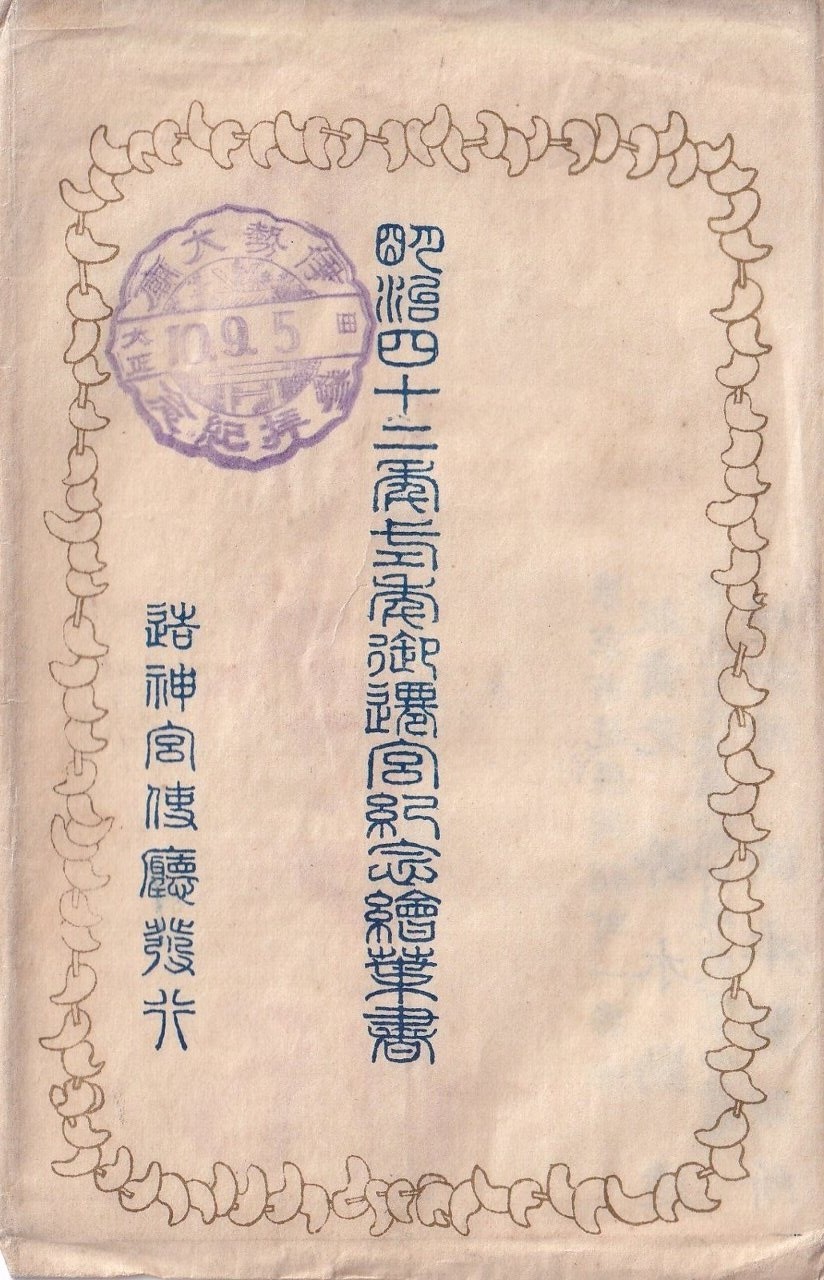 明治四十二年式年御遷宮紀念繪葉書
造神宮使廳發行
伊勢大廟
大正 10.9.5
拜紀念